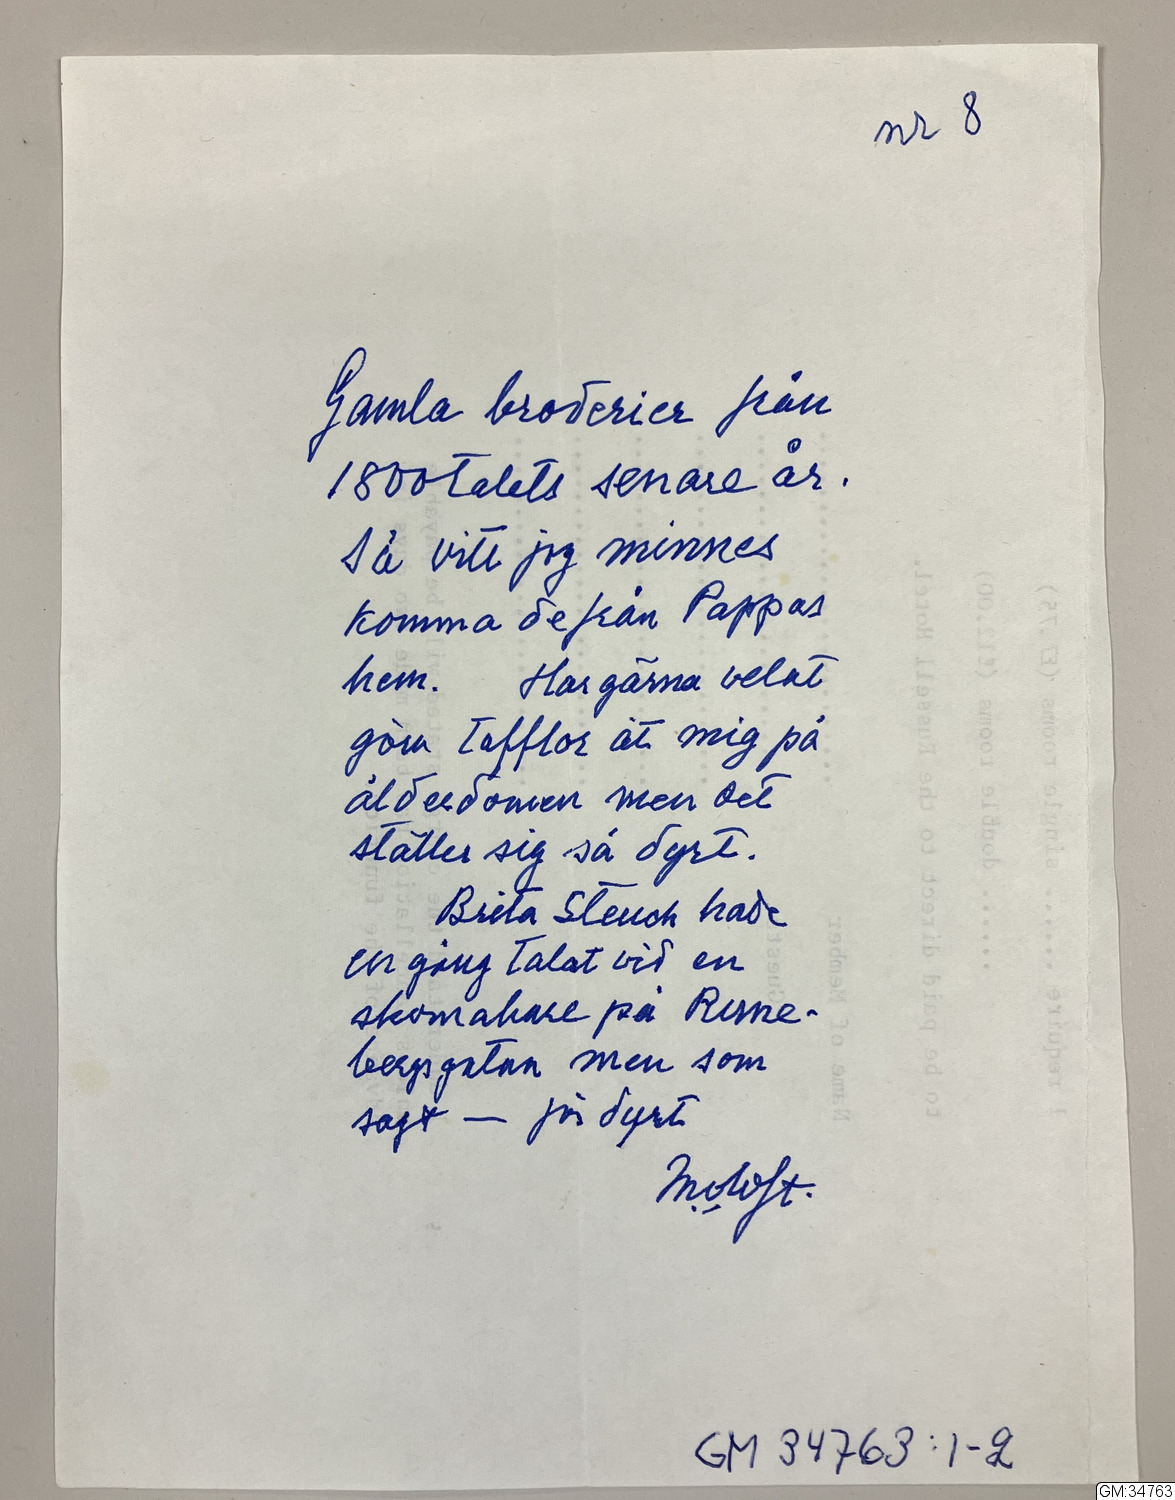 nr 8
Gamla broderier från
1800 talets senare år.
Så vitt jag minnes
komma de från Pappas
hem. Har gärna velat
göra tafflor åt mig på
ålderdomen men det
ställer sig så dyrt.
Brita Stenck hade
en gång talat vid en
skomakare på Rune-
bergsgatan men som
sagt — för dyrt
GM 34763:1-2
GM:34763